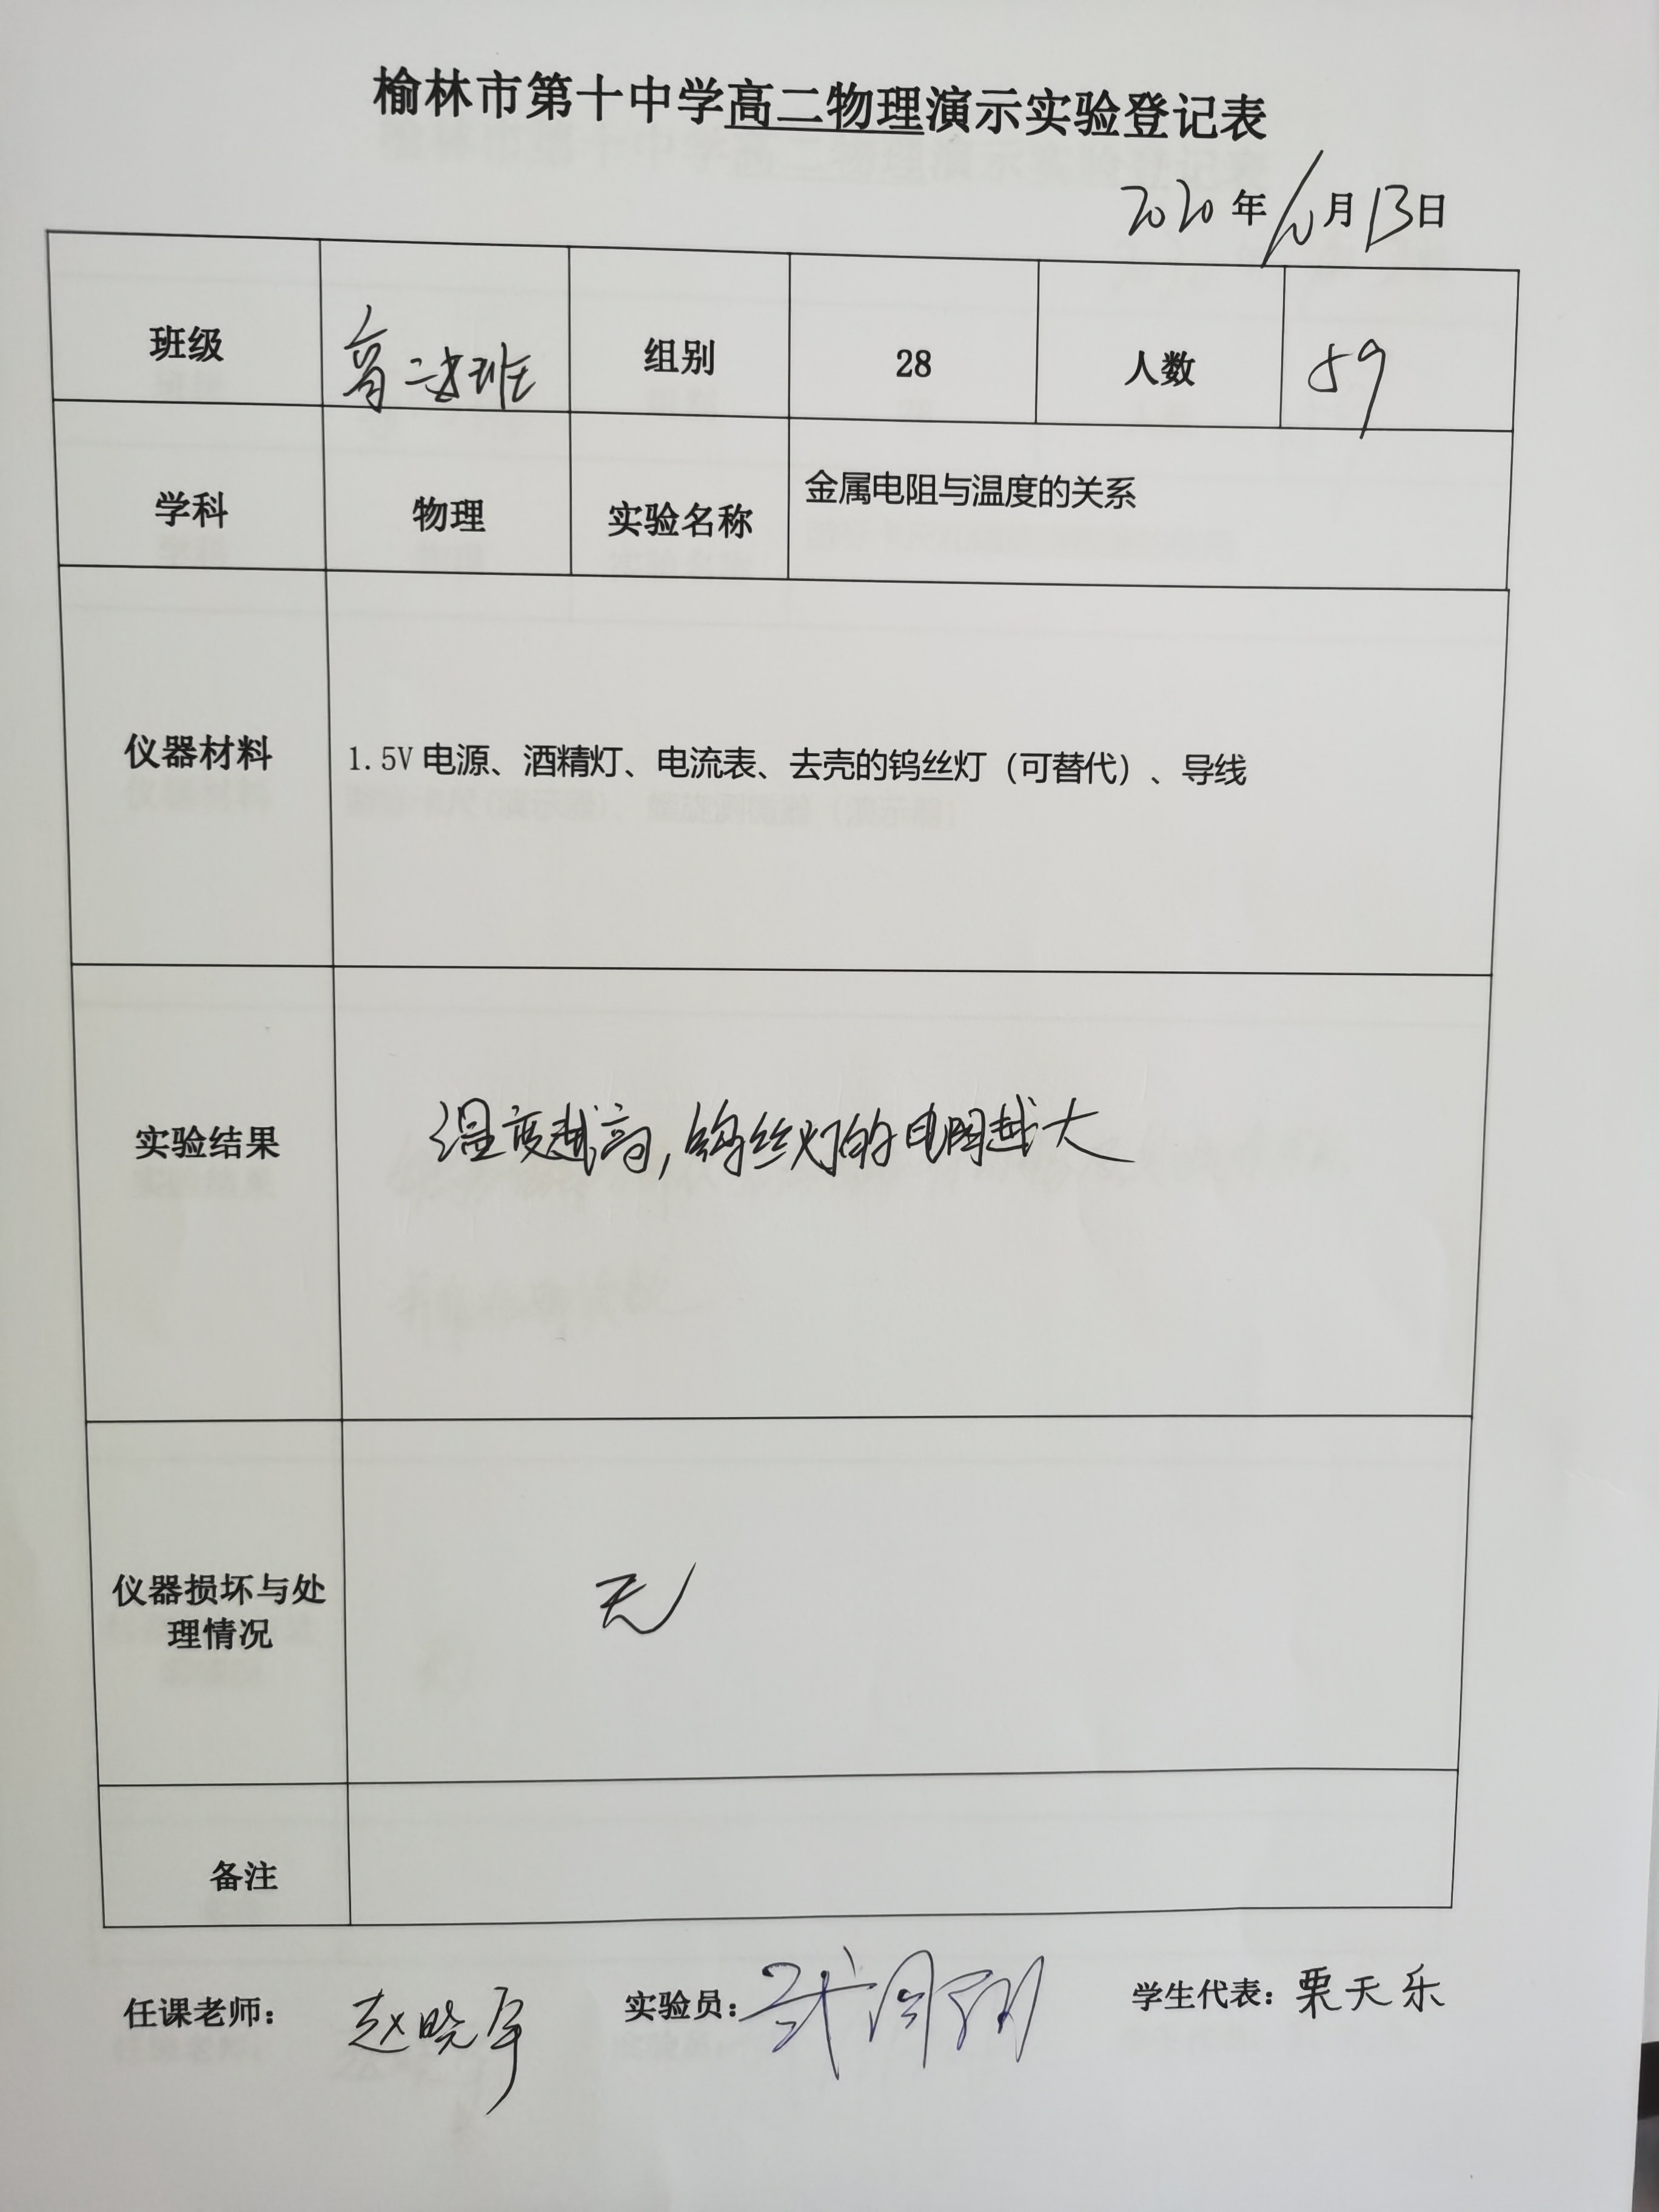 榆林市第十中学高二物理演示实验登记表
2020年10月13日
班级 组别 28 人数 59
学科 物理 实验名称 金属电阻与温度的关系
仪器材料 1.5V电源、酒精灯、电流表、去壳的钨丝灯（可替代）、导线
实验结果 温度越高,钨丝灯的电阻越大
仪器损坏与处
理情况 无
备注
任课老师： 赵晓军 实验员： 学生代表：栗天乐